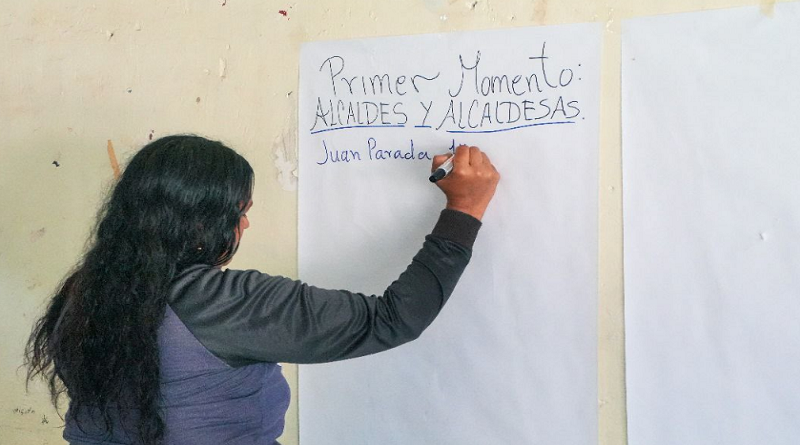 Primer Momento:
ALCALDES Y ALCALDESAS.
Juan Parada